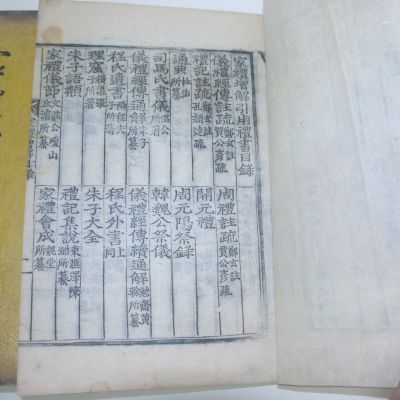 家禮增解引用禮書目錄
儀禮經傳註疏 鄭玄註 賈公彥疏 周禮註疏 鄭玄註 賈公彥疏
禮記註疏 鄭玄註 孔穎達疏 開元禮
通典 杜佑所纂 周元陽祭錄
司馬氏書儀 所著 韓魏公祭儀
儀禮經傳通解 朱子所纂 儀禮經傳續通解 勉齋黃榦所纂
程氏遺書 兩程子所著 程氏外書 上同
理窟 橫渠張子所著 朱子大全
朱子語類 禮記集說 東匯澤陳澔所纂
家禮儀節 文莊公瓊山丘濬所纂 家禮會成 魏堂所纂